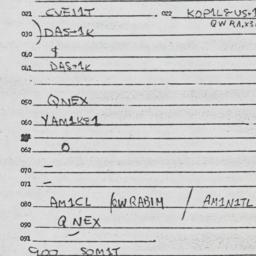 021 CVEJ1T . 022 KOP1L8US-1
QWRA.X3.
030 DAS-1K
040 $
041 DAS-1K
050 QNEX
060 YAM1KE1
062 0
070 –
071 –
080 AM1CL QWRABIM / AM1N1TL
090 QNEX
091 –
900 SOM1T